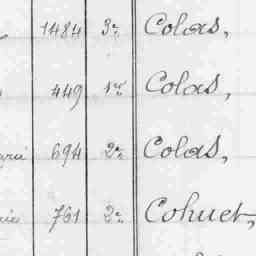 1484 3e Colas,
449 1er Colas,
694 2e Colas,
761 2e Cohuet,